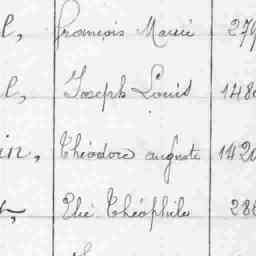 l, françois Marie 279
l, Joseph Louis 148
in, Théodore auguste 1420
Elie Théophile 286